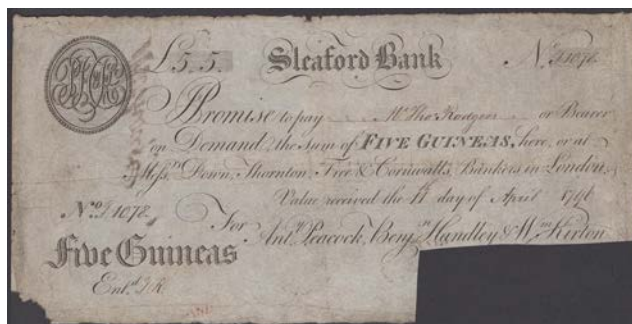 £5.5. Sleaford Bank No. I1078.
I Promise to pay Mr. Tho. Rodgers or Bearer
on Demand the Sum of FIVE GUINEAS, here, or at
Messrs. Down, Thornton, Free & Cornwalls, Bankers in London,
Value received the 11 day of April 1796
No. I1078. For
Anty. Peacock, Benjn. Handley & Wm. Kirton
Five Guineas
Entd.